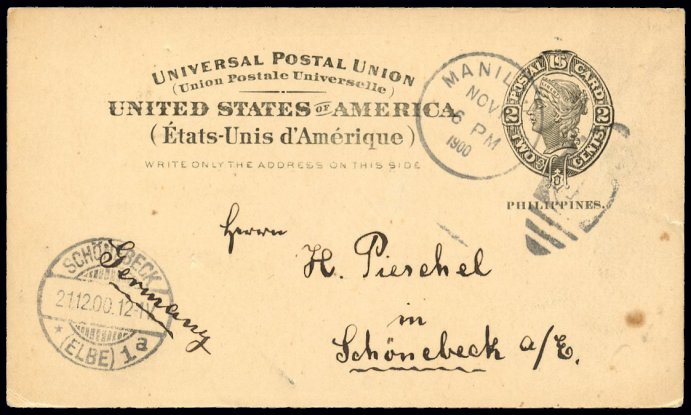 UNIVERSAL POSTAL UNION
(Union Postale Universelle)
UNITED STATES OF AMERICA
(États-Unis d'Amérique)
WRITE ONLY THE ADDRESS ON THIS SIDE
MANIL
NOV
6 PM
1900
POSTAL CARD
2 2
TWO CENTS
PHILIPPINES.
Herrn
H. Pieschel
in
Schönebeck a/E.
Germany
SCHÖNEBECK
21.12.00.12-1
* (ELBE) 1a